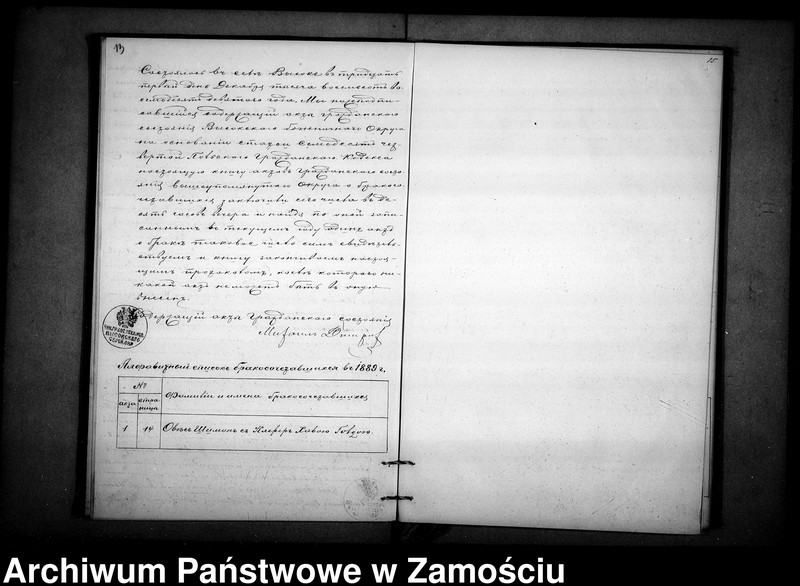 13
15
Состоялось въ селѣ Высоке въ тридцать
первый день Декабря тысяча восемьсотъ во
семьдесятъ девятого года. Мы нижеподпи
савшійся содержащій акты гражданского
состоянія Высокского Округа
на основаніи статьи семьдесятъ чет
вертой Гражданского Кодекса
настоящую книгу актовъ гражданского состо
янія вышеупомянутого Округа о бракосо
четавшихся заключили сего числа въ де
вять часовъ вечера и найдя по оной запи
саннымъ въ текущемъ году одинъ актъ
о бракѣ таковое число симъ свидѣтель
ствуемъ и книгу заканчиваемъ настоя
щимъ протоколомъ, послѣ которого ни
какой актъ неможетъ быть въ оную
внесенъ.
Содержащій акты гражданского состоянія
Михаилъ
Алфавитный списокъ бракосочетавшихся въ 1889 г.
№
акта
стра
ница
Фамиліи и имена бракосочетавшихся
1 14 Шумонъ съ Хавою
Archiwum Państwowe w Zamościu